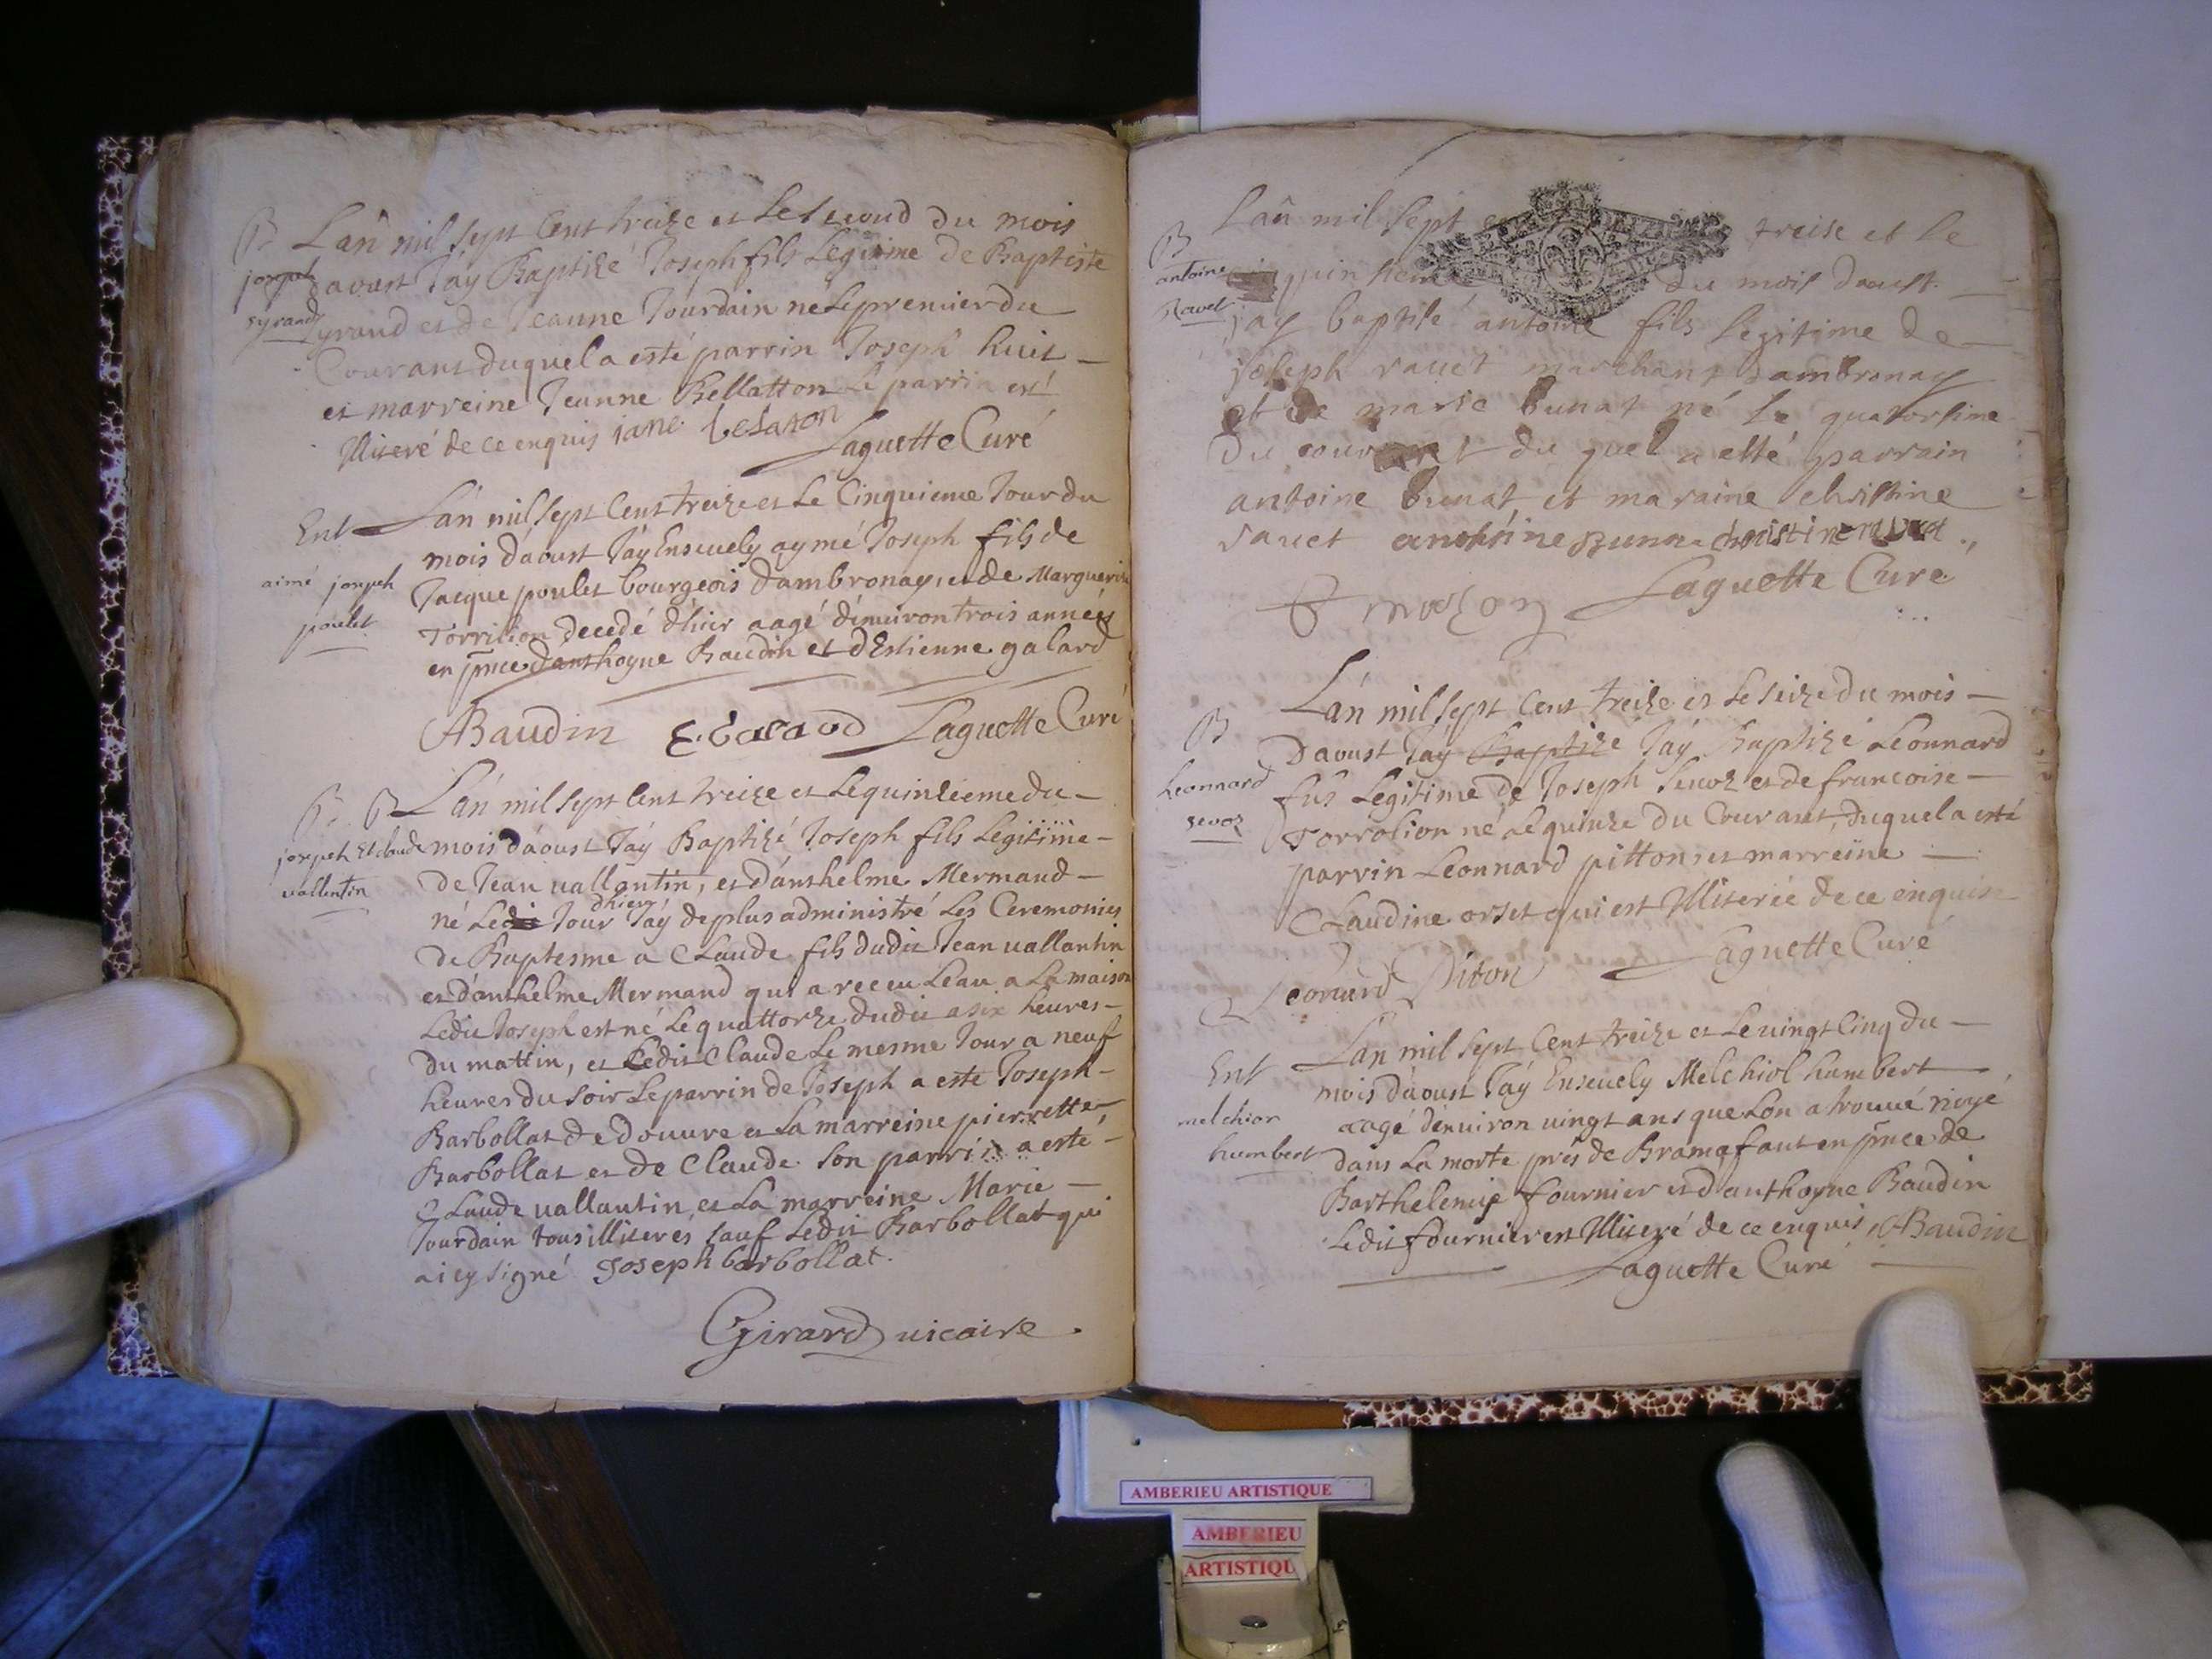 B
joseph
syrand
Lan mil sept Cent treize et Le second du mois
daoust Jáy Baptizé Joseph fils Legitime de Baptiste
syrand et de Jeanne Jourdain né Le premier du
Courant duquel a esté parrin Joseph huit
et marreine Jeanne Bellatton Le parrin est
Illiteré de ce enquis jane
Laguette Curé
Ent
aimé joseph
poulet
Lán mil sept Cent treize et Le Cinquieme Jour du
mois dáoust Jáy Enseuely aymé Joseph fils de
Jacque poulet bourgeois dambronay, et de Marguerite
Torrilion decedé d'hier aagé dénuiron trois années
en pnce danthoyne Baudin et dEstienne galard
ABaudin E. Galard Laguette Curé
B. B
joseph Et claude
vallentin
Lán mil sept Cent treize et Le quinzieme du
mois dáoust Jáy Baptizé Joseph fils Legitime
de Jean uallantin, et dánthelme Mermand
né Le Jour dhier Jáy de plus administré Les Ceremonies
de Baptesme a Claude fils dudit Jean uallantin
et dánthelme Mermand qui a receu Leau a La maison
Ledit Joseph est né Le quattorze dudit a six heures
du mattin, et Ledit Claude Le mesme Jour a neuf
heures du soir Le parrin de Joseph a esté Joseph
Barbollat de douure et La marreine pierrette
Barbollat et de Claude son parrin a esté
Claude uallantin et La marreine Marie
Jourdain tous illiterés sauf Ledit Barbollat qui
a icy signé Joseph barbollat.
Girard uicaire.
B
antoine
Ravet
Lan mil sept treise et le
quinsieme du mois daoust
jay baptisé antoine fils legitime de
joseph rauet marchant dambronay
et de marie bunat né le quatorsime
du courant du quel a esté parrain
antoine bunat et maraine christine
rauet anthoine christine
Laguette Curé
B
Leonnard
sevoz
Lán mil sept Cent treize et Le seize du mois
Daoust Jáy Baptizé Jáy Baptizé Leonnard
fils Legitime de Joseph Seuoz et de francoise
Torrolion né Le quinze du Courant, duquel a esté
parrin Leonnard pitton, et marreine
Claudine orset qui est Illiterée de ce enquise
Leonard Piton Laguette Curé
Ent
melchior
humbert
Lan mil sept Cent treize et Le uingt Cinq du
mois dáoust Jáy Enseuely Melchiol humbert
aagé dénuiron uingt ans que Lon a trouué noyé
dans La morte prés de Bramafant en pnce de
Barthelemie fournier et danthoyne Baudin
Ledit fournier est Illiteré de ce enquis ABaudin
Laguette Curé
AMBERIEU ARTISTIQUE
AMBERIEU
ARTISTIQU